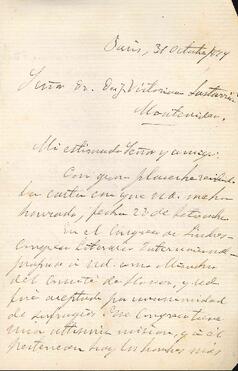 Paris, 31 Octubre
Señor Dr. Don J. Victorino Lastarria
Montevideo
Mi estimado Señor y amigo:
Con gran placer he recibido
la carta con que Ud. me ha
honrado, fecha 22 de Setiembre
En el Congreso de
Congreso Literario Internacional
propuse a Ud. como Miembro
del Comité de Honor, y Ud.
fue aceptado por unanimidad
de sufragios. Ese Congreso tiene
una altísima misión, y a él
pertenecen hoy los hombres mas